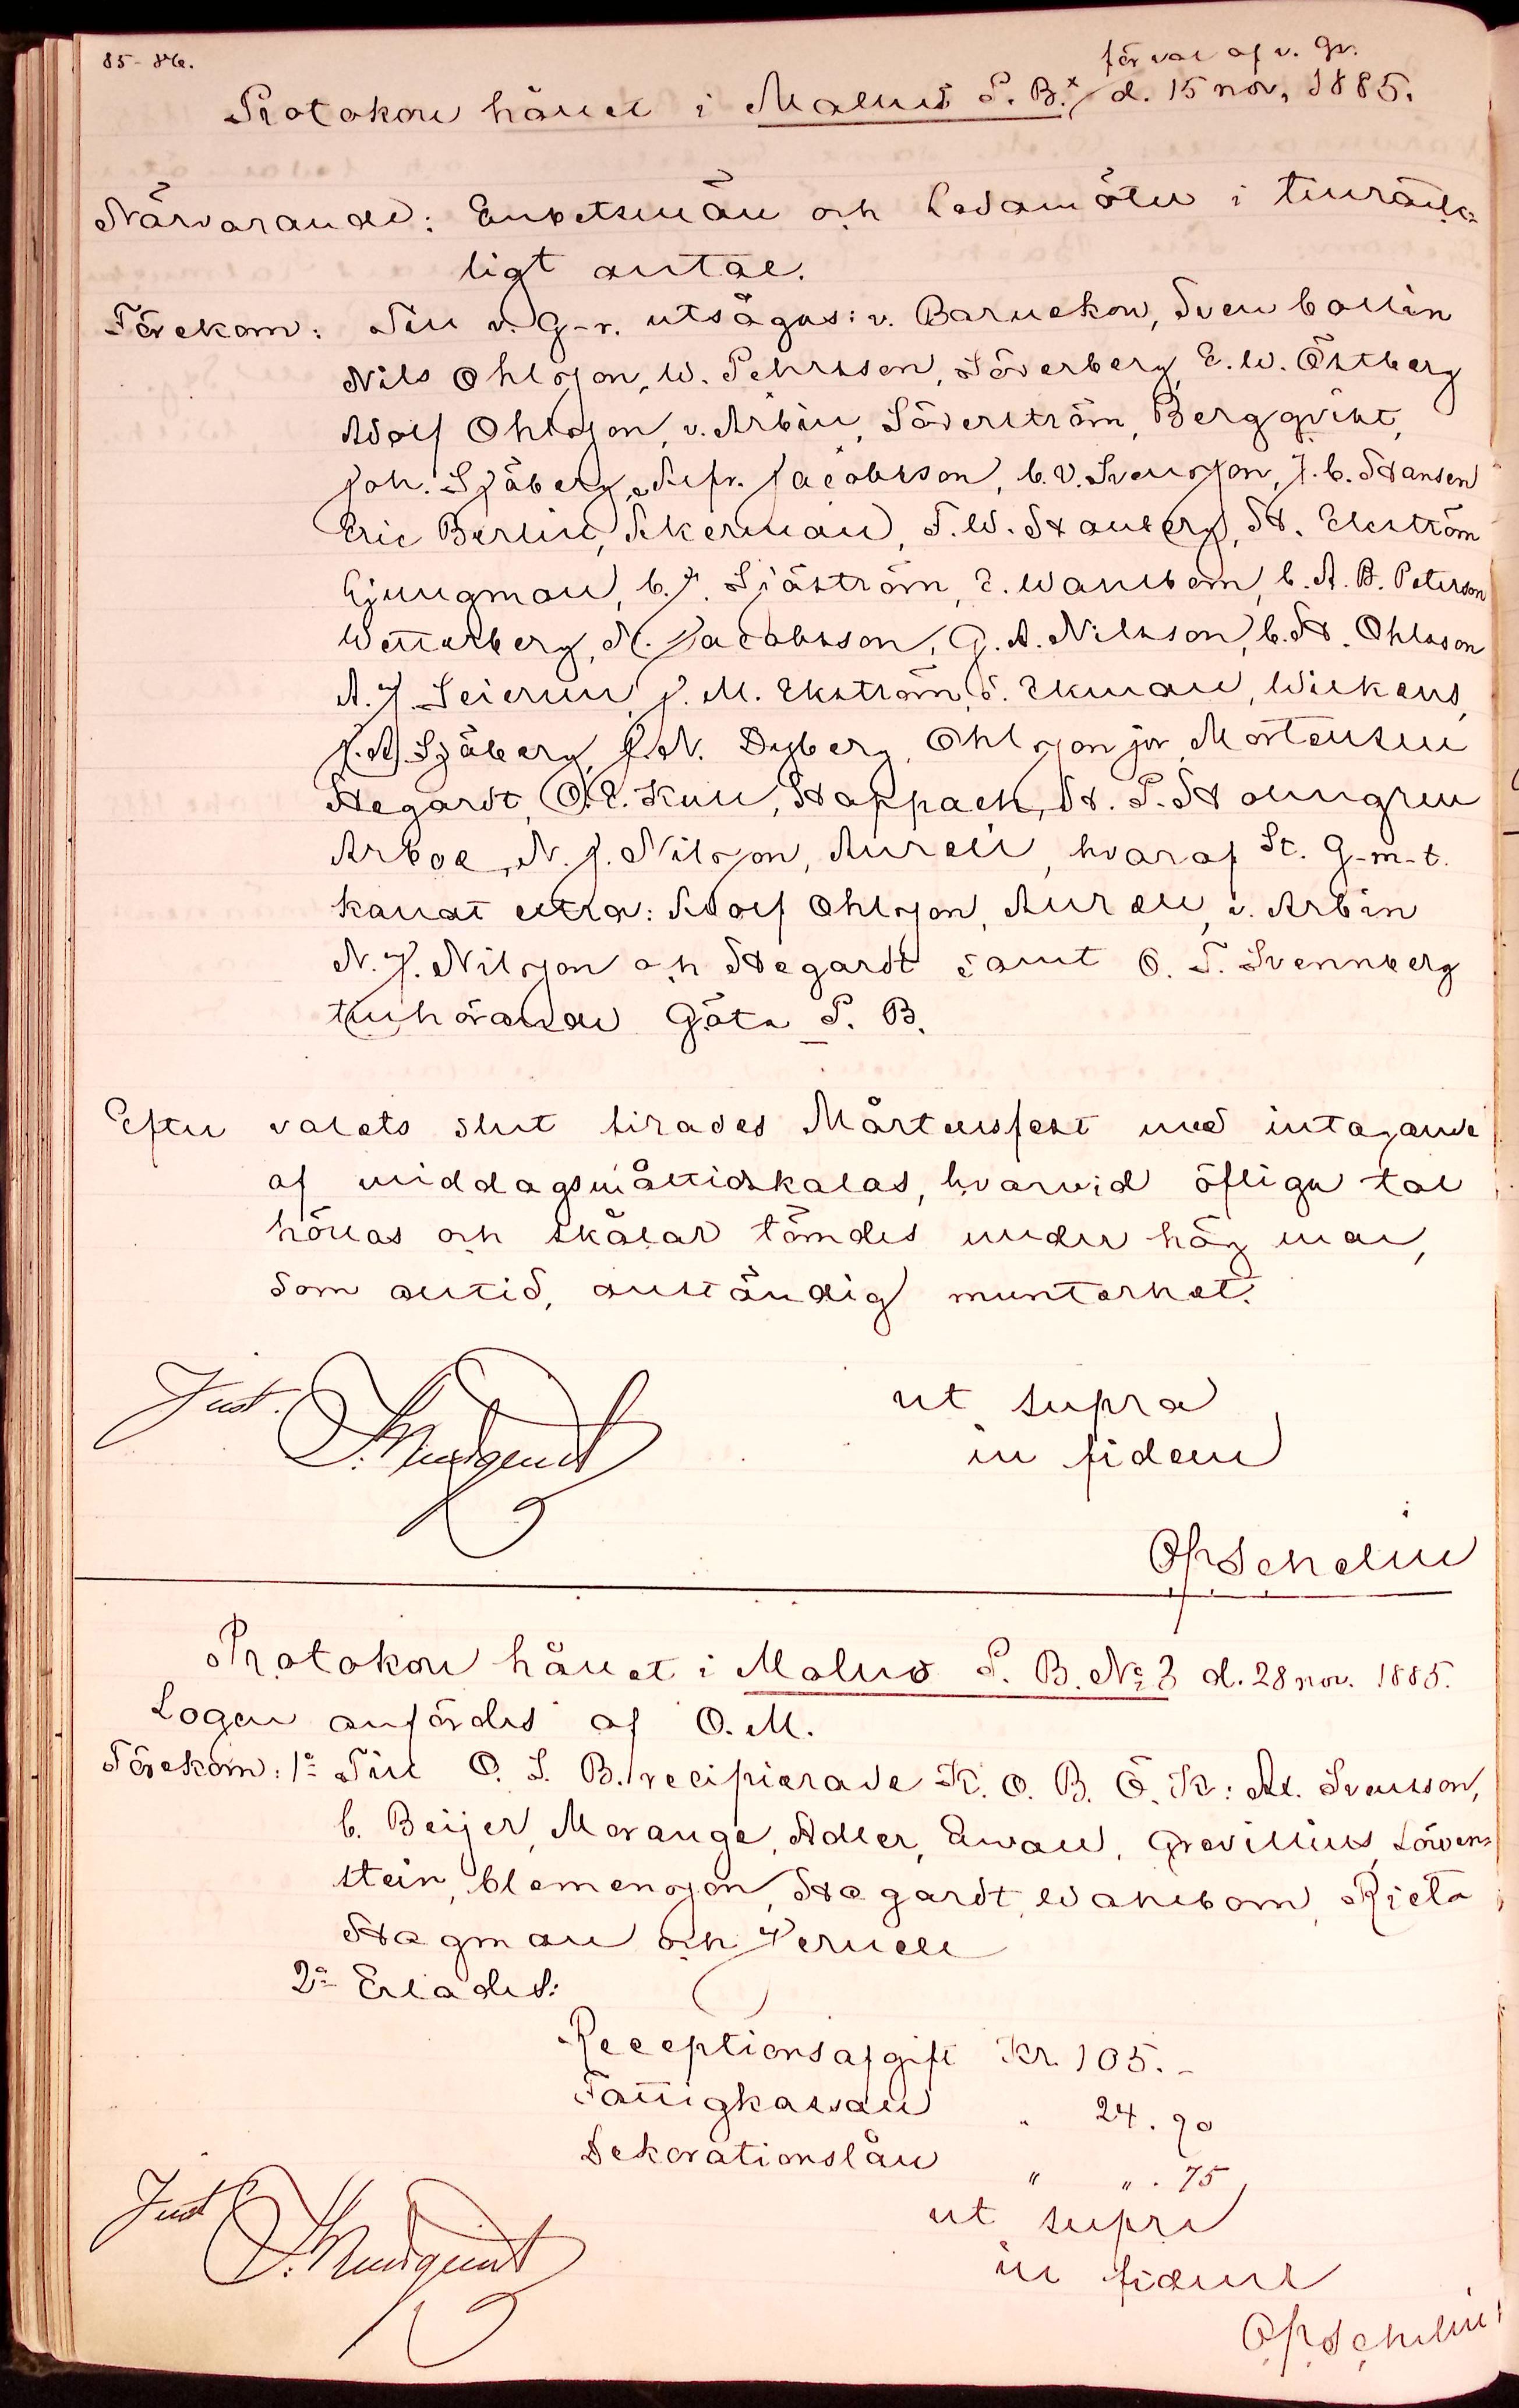 85-86.
för val af v. Gr.
Protokoll hållet i Malmö P. B. × d. 15 nov. 1885.
Närvarande: Embetsmän och Ledamöter i tillräck=
ligt antal.
Förekom: Till v. G-r. utsågos: v. Barnekow, Sven Collin
Nils Ohlsson, W. Pehrsson, Söderberg, E. W. Östberg
Adolf Ohlsson, v. Arbin, Söderström, Bergqvist,
Joh. Sjöberg, Alfr. Jacobsson, C. V. Svensson, J. C. Hansen
Eric Berlin, Åkerman, F. W. Hallberg, H. Ekström
Ljungman, C. J. Sjöström, E. Wahlbom, C. A. B. Peterson
Wetterberg, M. Jacobsson, G. A. Nilsson, C. H. Ohlsson
A. J. Leierun, J. M. Ekström, S. Ekman, Wilkens,
J. A. Sjöberg, J. N. Dyberg, Ohlsson jor, Mortensen
Hegardt, O. E. Kull, Happach, H. P. Holmgren
Arboe, N. J. Nilsson, Aurell, hvaraf St. G-m-t.
kallat extra: Adolf Ohlsson, Aurell, v. Arbin
N. J. Nilsson och Hegardt samt O. F. Svennberg
tillhörande Göta P. B.
Efter valets slut firades Mårtensfest med intagande
af middagsmåltidskalas, hvarvid öfliga tal
höllos och skålar tömdes under hög men,
som alltid, anständig munterhet.
Just.
ut supra
in fidem
O P Schelin
Protokoll hållet i Malmö P. B. No 3 d. 28 nov. 1885.
Logen anfördes af O. M.
Förekom: 1o Till O. S. B. recipierade K. O. B. Ö. K: Al. Svensson,
C. Beijer, Morange, Adler, Ewall, Grevillius, Löven=
stein, Clemensson, Hegardt, Wahlbom, Rietz
Hagman och Pernell
2o Erlades:
Receptionsafgift Kr. 105.-
Fattigkassan " 24.90
Dekorationslån " " . 75
Just
ut supra
in fidem
O P Schelin